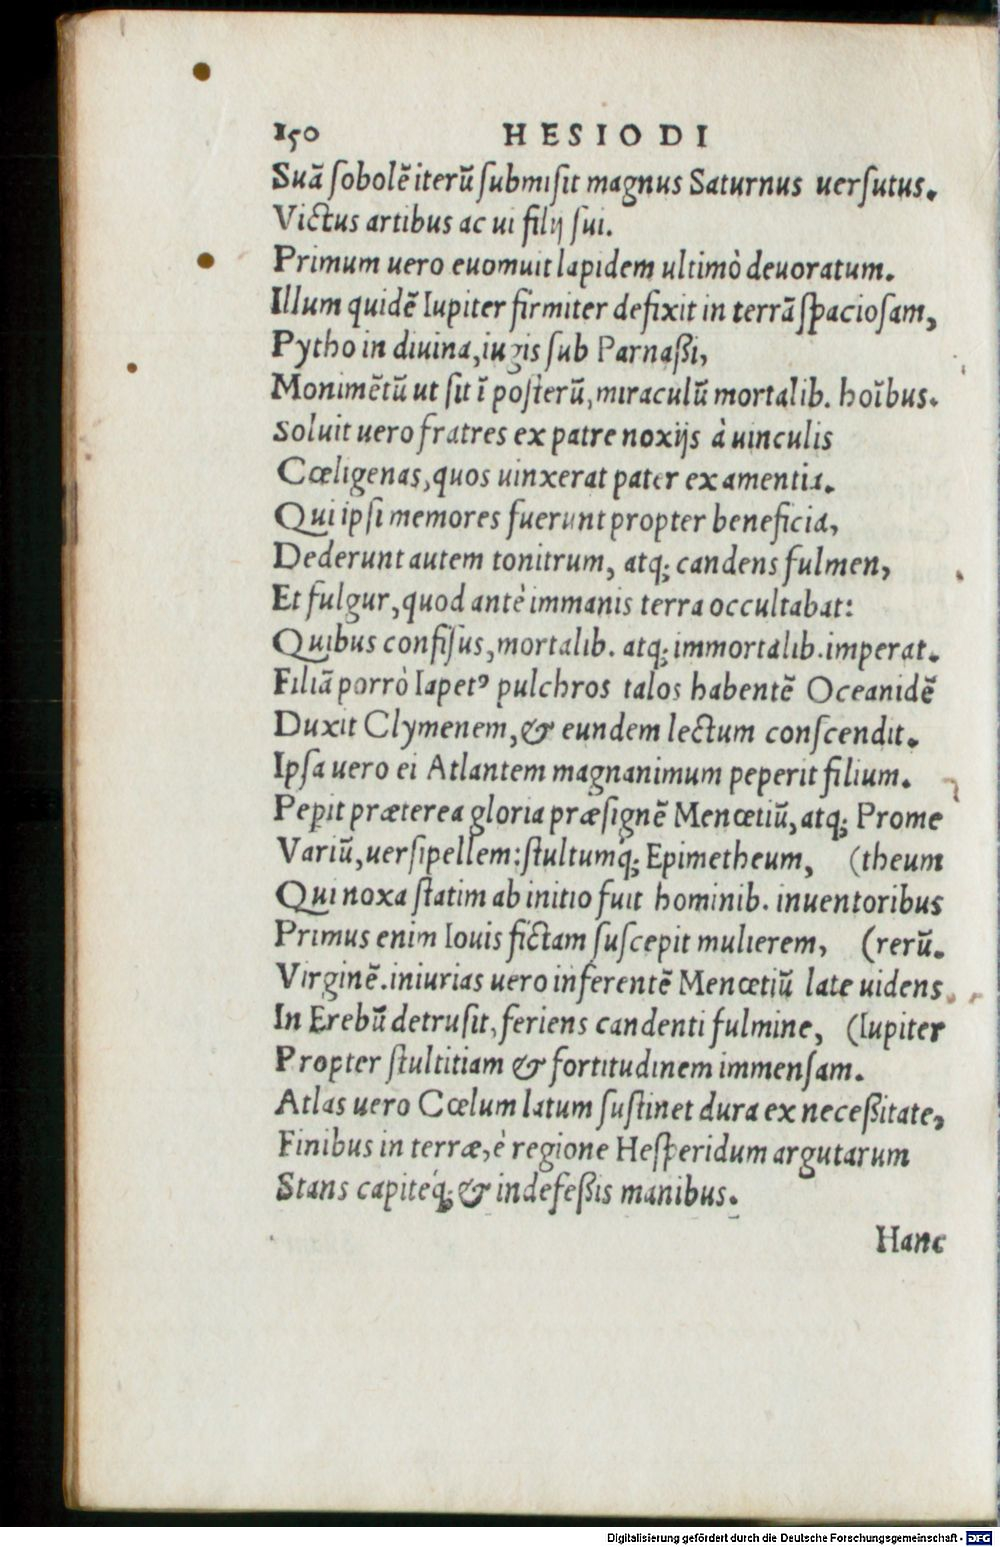 150 HESIODI
Suã ſobolẽ iterũ ſubmiſit magnus Saturnus uerſutus.
Victus artibus ac ui filij ſui.
Primum uero euomuit lapidem ultimò deuoratum.
Illum quidẽ Iupiter firmiter defixit in terrã ſpacioſam,
Pytho in diuina, iugis ſub Parnaßi,
Monimẽtũ ut ſit ĩ poſterũ, miraculũ mortalib. hoĩbus.
Soluit uero fratres ex patre noxijs à uinculis
Cœligenas, quos uinxerat pater ex amentia.
Qui ipſi memores fuerunt propter beneficia,
Dederunt autem tonitrum, atq; candens fulmen,
Et fulgur, quod antè immanis terra occultabat:
Quibus confiſus, mortalib. atq; immortalib. imperat.
Filiã porrò Iapetꝰ pulchros talos habentẽ Oceanidẽ
Duxit Clymenem, & eundem lectum conſcendit.
Ipſa uero ei Atlantem magnanimum peperit filium.
Pepit præterea gloria præſignẽ Menœtiũ, atq; Prome
Variũ, uerſipellem: ſtultumq́; Epimetheum, (theum
Qui noxa ſtatim ab initio fuit hominib. inuentoribus
Primus enim Iouis fictam ſuſcepit mulierem, (rerũ.
Virginẽ. iniurias uero inferentẽ Menœtiũ late uidens
In Erebũ detruſit, feriens candenti fulmine, (Iupiter
Propter ſtultitiam & fortitudinem immenſam.
Atlas uero Cœlum latum ſuſtinet dura ex neceßitate,
Finibus in terræ, è regione Heſperidum argutarum
Stans capiteq́; & indefeßis manibus.
Hanc
Digitalisierung gefördert durch die Deutsche Forschungsgemeinschaft - DFG